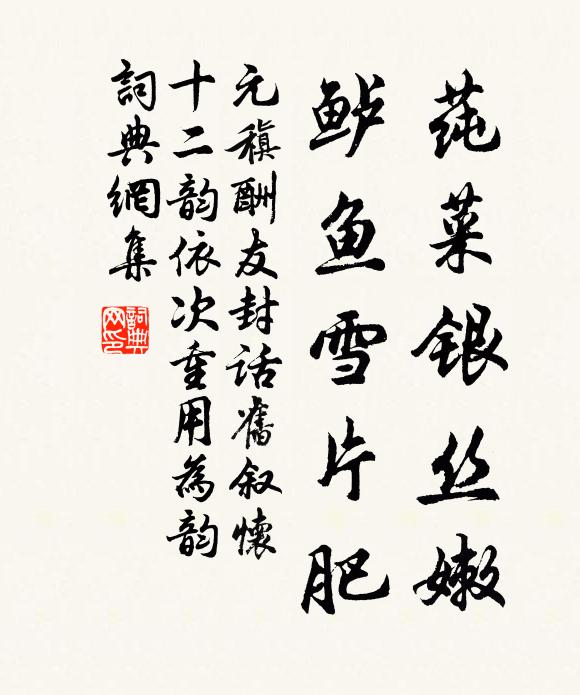 莼菜银丝嫩
鲈鱼雪片肥
元稹酬友封話舊叙懷
十二韵依次重用為韵
詞典網集
詞典
网印